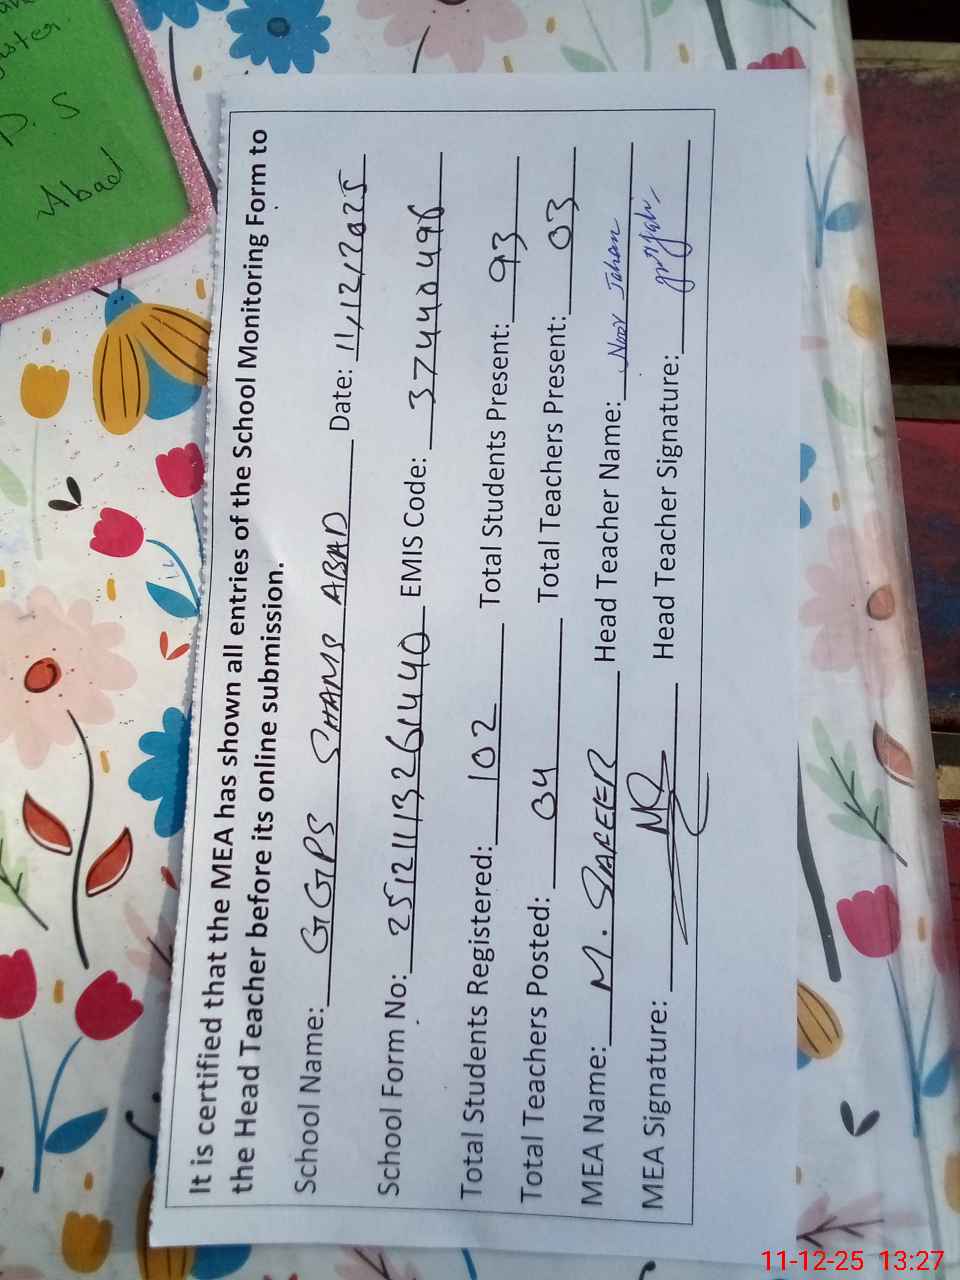 It is certified that the MEA has shown all entries of the School Monitoring Form to
the Head Teacher before its online submission.
School Name: GGPS SHAMS ABAD Date: 11/12/2025
School Form No: 25121113261440 EMIS Code: 37440496
Total Students Registered: 102 Total Students Present: 93
Total Teachers Posted: 04 Total Teachers Present: 03
MEA Name: M. SAFEER Head Teacher Name: Noor Jahan
MEA Signature: Head Teacher Signature:
D. S
Abad
11-12-25 13:27